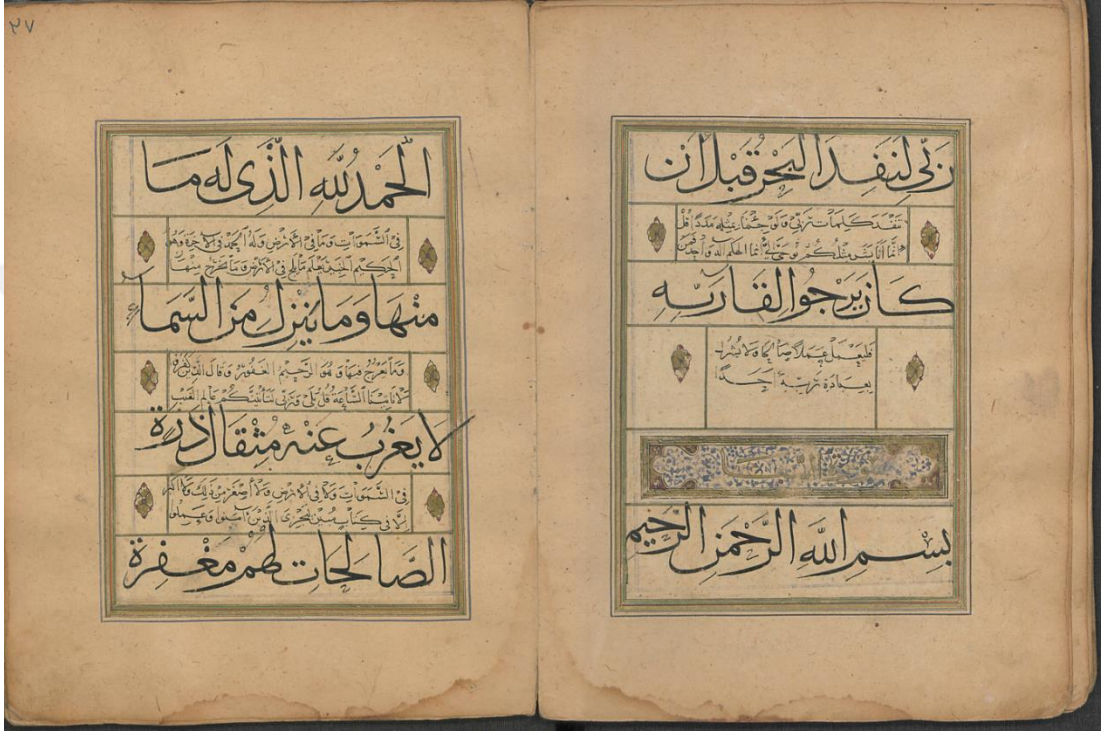 رَبِّي لَنَفِدَ الْبَحْرُ قَبْلَ اَن
تَنْفَدَ كَلِمَات رَبِّي وَلَوْ جِئْنَا بِمِثْلِهِ مَدَدًا قُلْ
انَّمَا اَنَا بَشَرٌ مِثْلُكُمْ يُوحَى الَيَّ انَّمَا الهكم اله وَاحِد فَمَن
كَانَ يَرْجُوا لِقَا رَبِّه
فَلْيَعْمَلْ عَمَلًا صَالِحًا وَلَا يُشْرِك
بِعِبَادَةِ رَبِّهِ اَحَدًا
بِسْمِ اللَّهِ الرَّحْمَنِ الرَّحِيم
٢٧
اَلْحَمْدُ لِلَّهِ الَّذِي لَهُ مَا
فِي السَّمَوَاتِ وَمَا فِي الْاَرْضِ وَلَهُ الْحَمْدُ فِي الْاخِرَةِ وَهُوَ
الْحَكِيمُ الْخَبِيرُ يَعْلَمُ مَا يَلِجُ فِي الْاَرْضِ وَمَا يَخْرُجُ مِنْهَا
مِنْهَا وَمَا يَنْزِلُ مِنَ السَّمَآءِ
وَمَا يَعْرُجُ فِيهَا وَهُوَ الرَّحِيمُ الْغَفُورُ وَقَالَ الَّذِينَ كَفَرُوا
لَا تَاْتِينَا السَّاعَةُ قُلْ بَلَى وَرَبِّي لَتَاْتِيَنَّكُمْ عَالِمِ الْغَيْبِ
لَا يَعْزُبُ عَنْهُ مِثْقَالُ ذَرَّةٍ
فِي السَّمَوَاتِ وَلَا فِي الْاَرْضِ وَلَا اَصْغَرُ مِنْ ذَلِكَ وَلَا اَكْبَرُ
اِلَّا فِي كِتَابٍ مُبِينٍ لِيَجْزِيَ الَّذِينَ اٰمَنُوا وَعَمِلُوا
الصَّالِحَاتِ لَهُمْ مَغْفِرَة